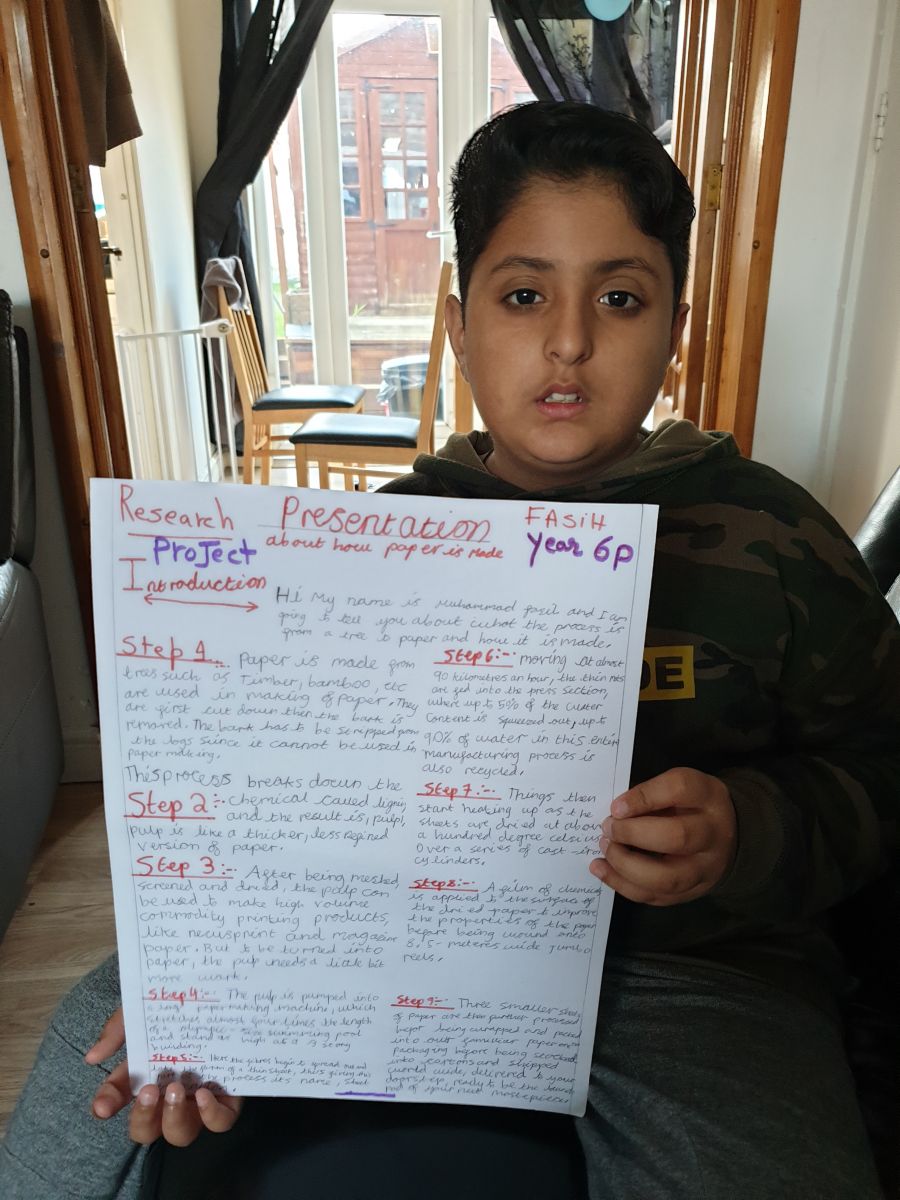 Research Presentation FASIH
Project about how paper is made Year 6P
Introduction
Hi My name is Muhammad and I am
going to tell you about what the process is
from a tree to paper and how it is made.
Step 1 Paper is made from
trees such as Timber, bamboo, etc
are used in making of paper. They
are first cut down then the bark is
removed. The bark has to be stripped from
the logs since it cannot be used in
paper making.
This process breaks down the
Step 2:- chemical called lignin
and the result is, pulp!,
pulp is like a thicker, less refined
version of paper.
Step 3:- After being meshed,
screened and dried, the pulp can
be used to make high volume
commodity printing products,
like newsprint and magazine
paper. But to be turned into
paper, the pulp needs a little bit
more work.
Step 4:- The pulp is pumped into
a paper making machine, which
stretches almost four times the length
of a olympic-size swimming pool
and stand as high as a 3 story
building.
Step 5:- Here the fibres begin to spread out and
the of a thin sheet, this giving this
process its name, sheet
Step 6:- moving at almost
90 kilometres an hour, the thin
are fed into the press section,
where up to 50% of the water
content is squeezed out, up to
90% of water in this entire
manufacturing process is
also recycled.
Step 7:- Things then
start heating up as the
sheets are dried at above
a hundred degree celsius
over a series of cast-iron
cylinders.
Step 8:- A film of chemical
is applied to the surface of
the dried paper to improve
the properties of the paper
before being wound onto
8.5-meteres wide jumbo
reels.
Step 9:- Three smaller
of paper are then further processed
before being wrapped and packed
into our familiar paper
packaging before being
into cartons and shipped
world wide, delivered to your
doorstep, ready to be the
of your next masterpiece.
DE